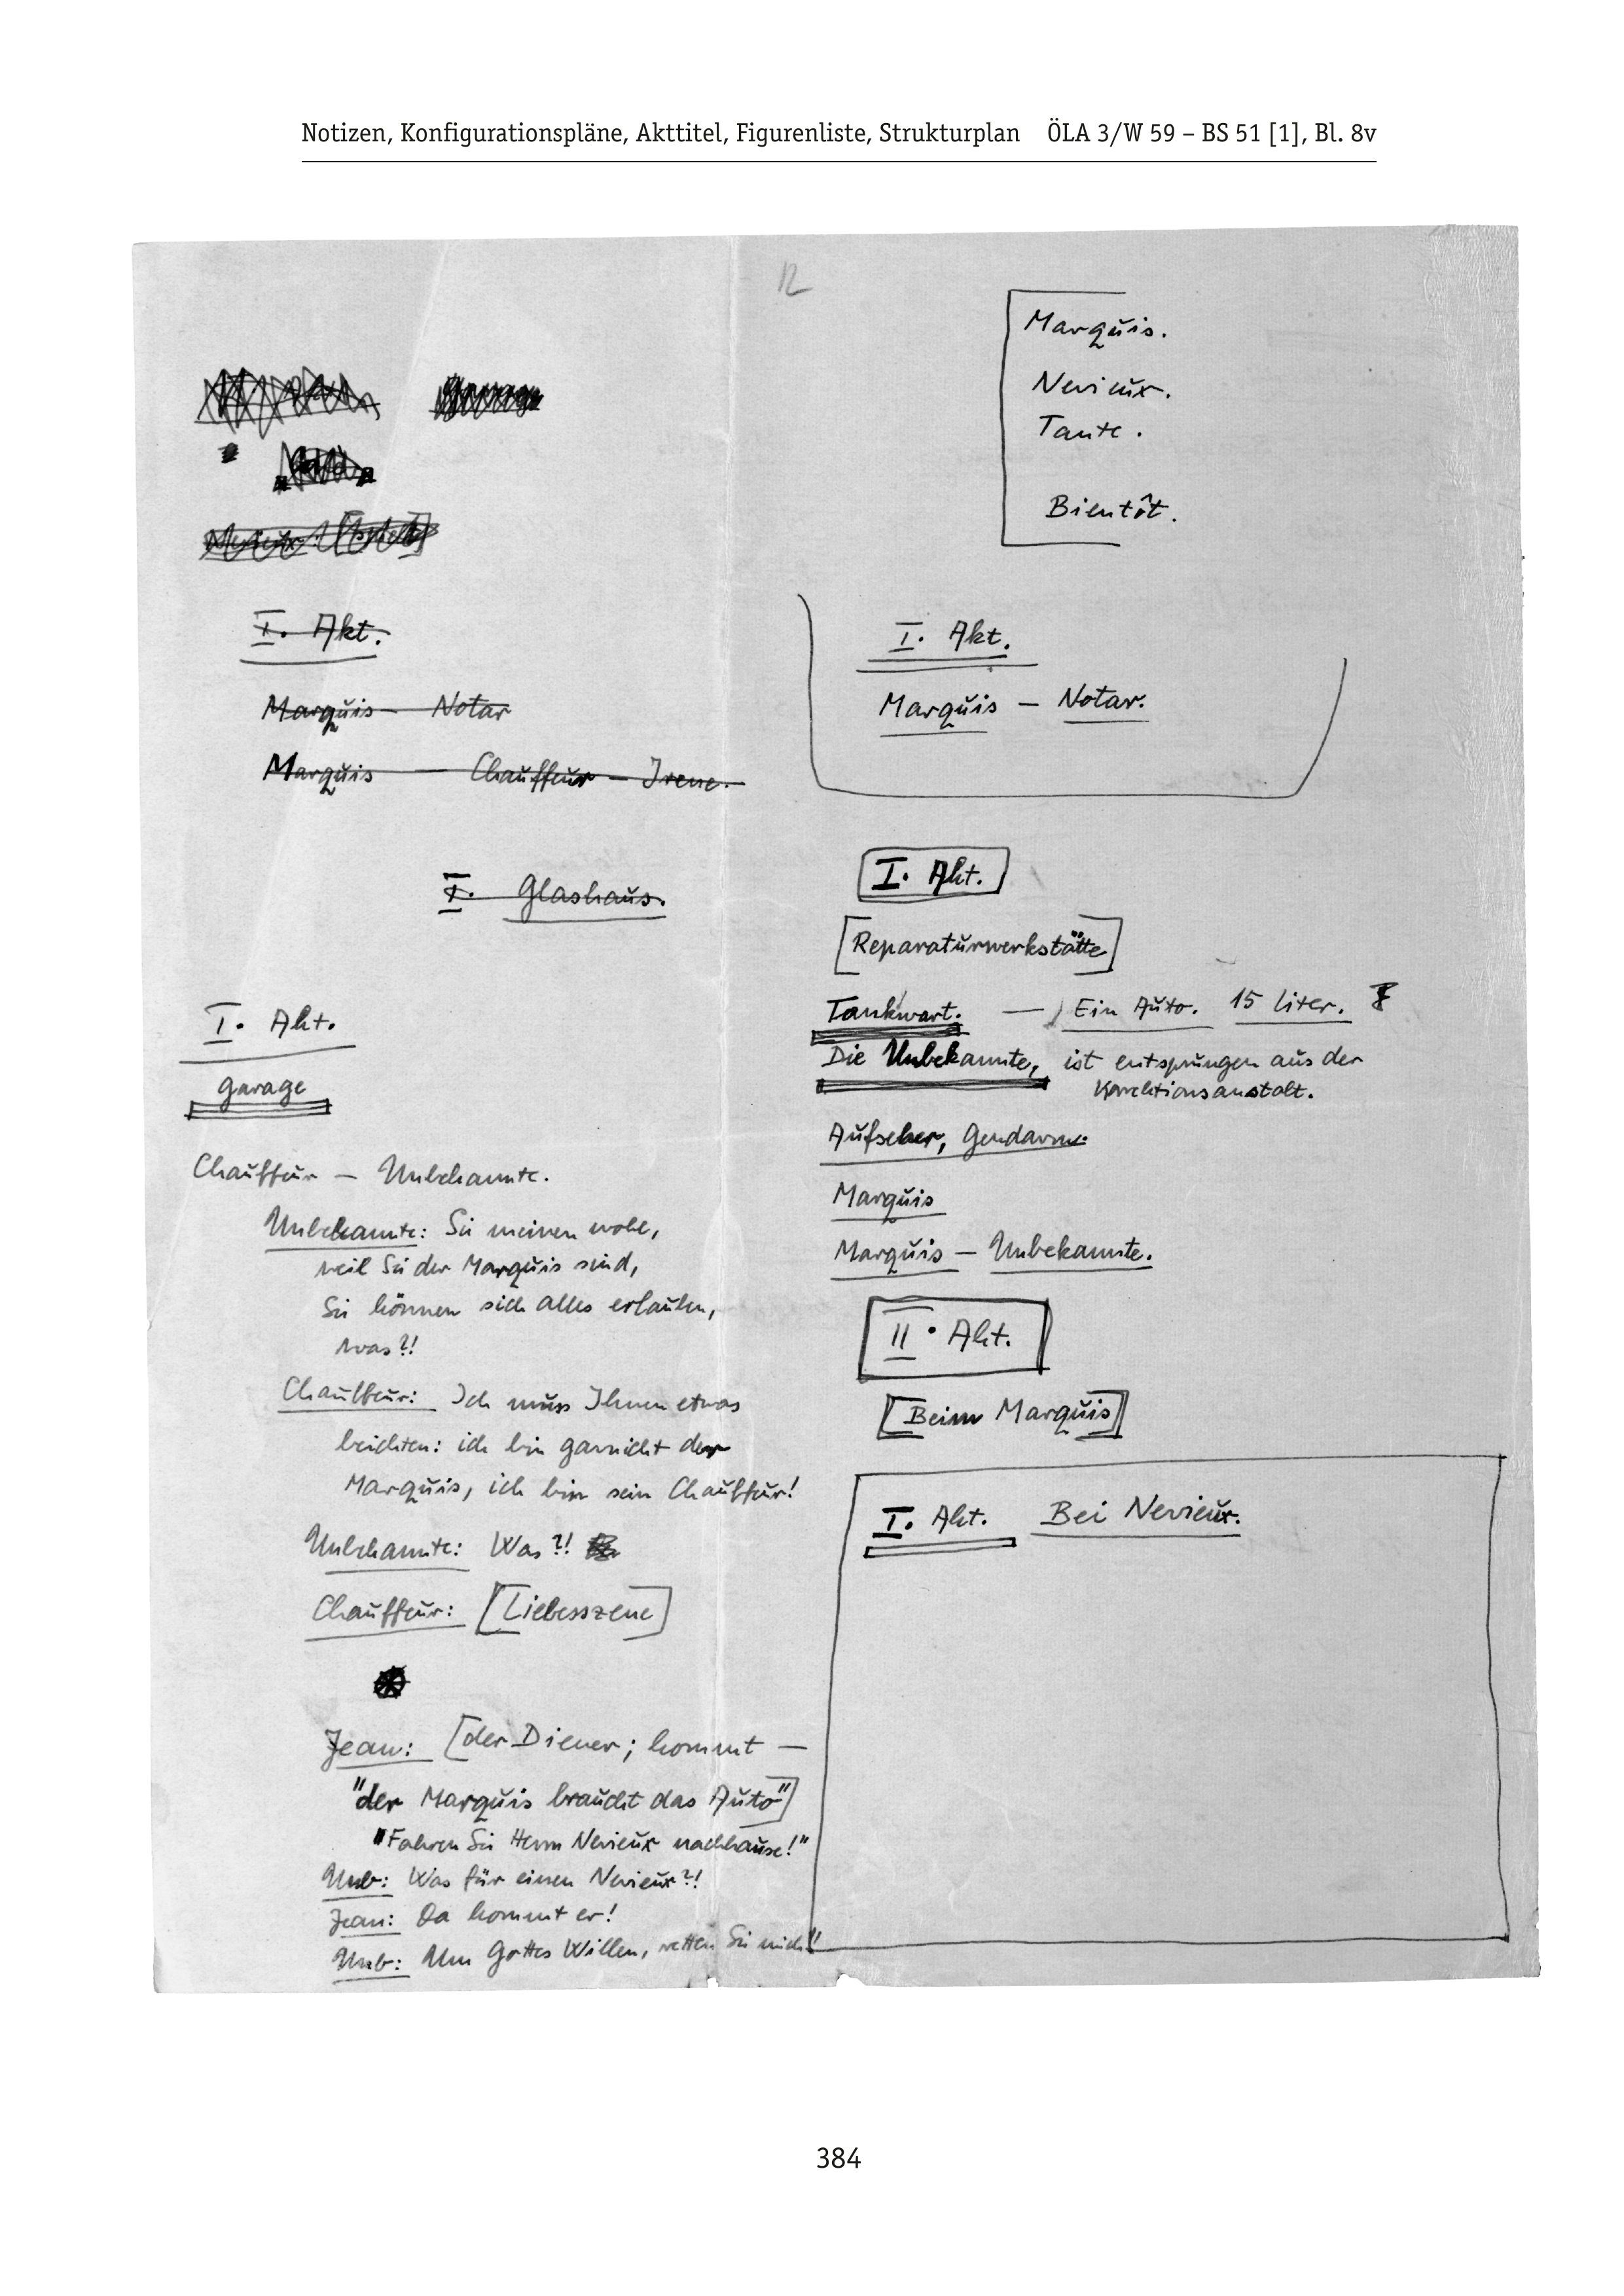 Notizen, Konfigurationspläne, Akttitel, Figurenliste, Strukturplan ÖLA 3/W 59 – BS 51 [1], Bl. 8v
12
I. Akt.
Marquis – Notar
Marquis – Chauffeur – Irene.
I. Glashaus.
I. Akt.
Garage
Chauffeur – Unbekannte.
Unbekannte: Sie meinen wohl,
weil Sie der Marquis sind,
Sie können sich alles erlauben,
was?!
Chauffeur: Ich muss Ihnen etwas
beichten: ich bin garnicht der
Marquis, ich bin sein Chauffeur!
Unbekannte: Was?!
Chauffeur: [Liebesszene]
Jean: [der Diener; kommt –
"der Marquis braucht das Auto"]
"Fahren Sie Herrn Nevieux nachhause!"
Unb: Was für einen Nevieux?!
Jean: Da kommt er!
Unb: Um Gottes Willen, retten Sie mich!
Marquis.
Nevieux.
Tante.
Bientôt.
I. Akt.
Marquis – Notar.
I. Akt.
[Reparaturwerkstätte]
Tankwart. – Ein Auto. 15 Liter.
Die Unbekannte, ist entsprungen aus der
Korrektionsanstalt.
Aufseher, Gendarm.
Marquis
Marquis – Unbekannte.
II. Akt.
[Beim Marquis]
I. Akt. Bei Nevieux.
384